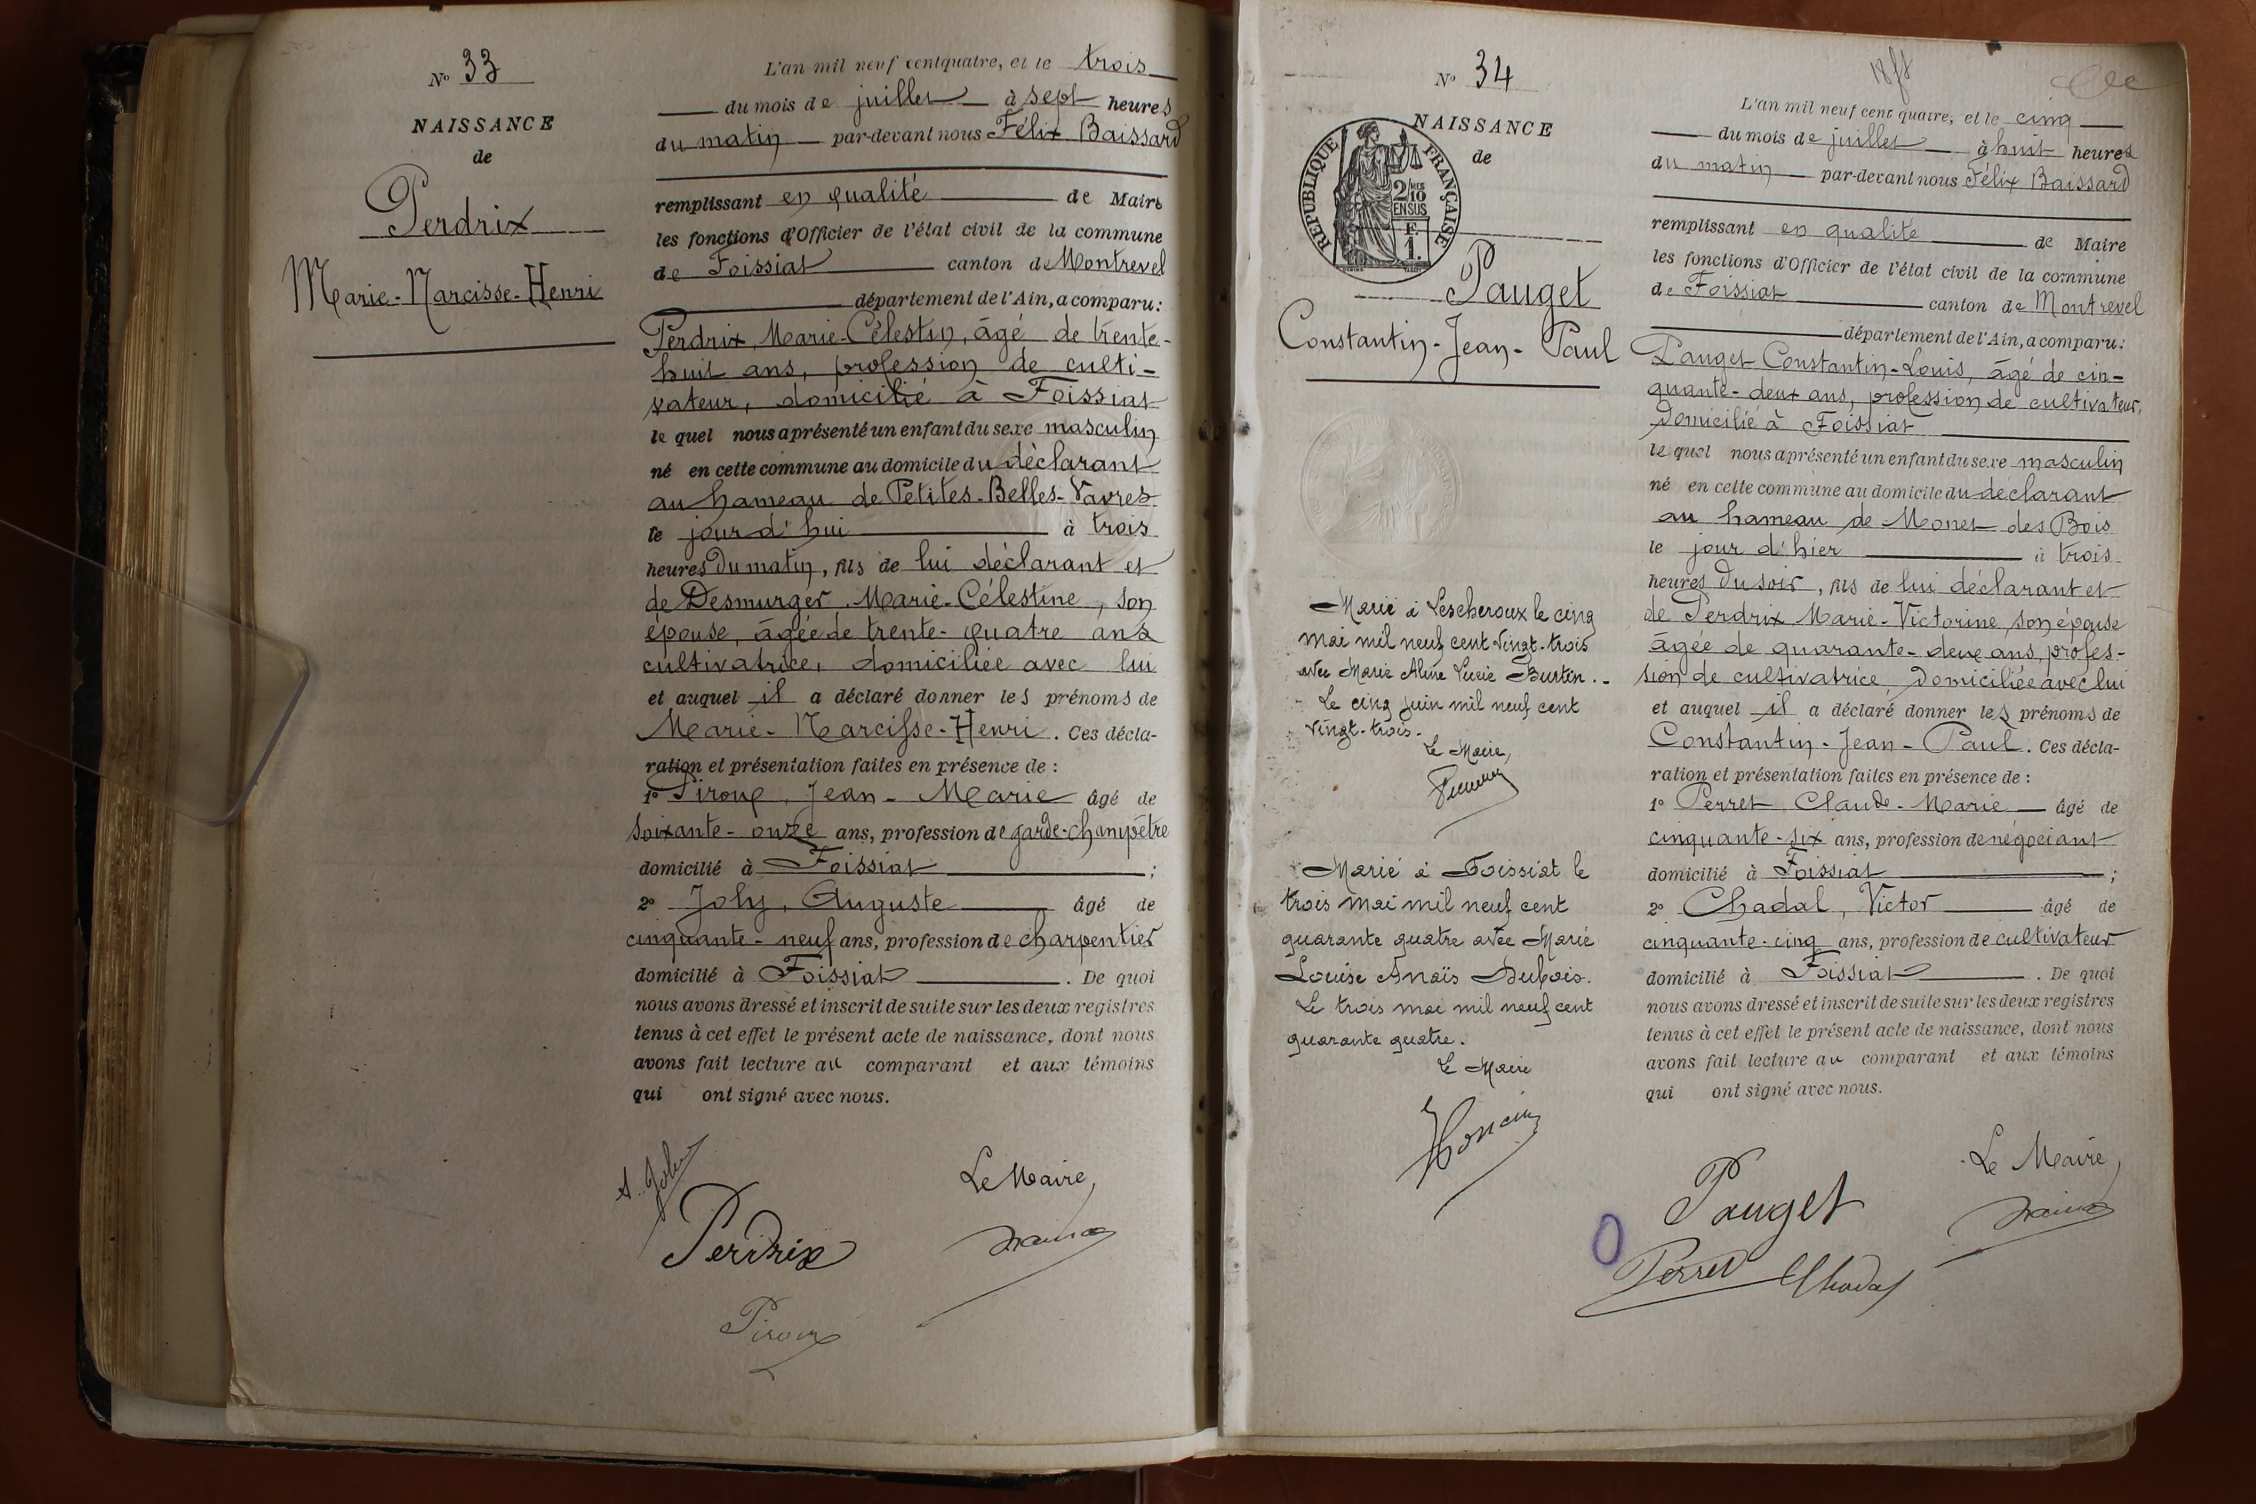 Nº 33
NAISSANCE
de
Perdrix
Marie-Narcisse-Henri
L'an mil neuf cent quatre, et le trois
du mois de juillet à sept heures
du matin par-devant nous Félix Baissard
remplissant en qualité de Maire
les fonctions d'Officier de l'état civil de la commune
de Foissiat canton de Montrevel
département de l'Ain, a comparu:
Perdrix, Marie-Célestin, âgé de trente-
huit ans, profession de culti-
vateur, domicilié à Foissiat
le quel nous a présenté un enfant du sexe masculin
né en cette commune au domicile du déclarant
au hameau de Petites-Belles-Vavres
le jour d'hui à trois
heures du matin, fils de lui déclarant et
de Desmurger Marie-Célestine, son
épouse, âgée de trente-quatre ans
cultivatrice, domiciliée avec lui
et auquel il a déclaré donner les prénoms de
Marie-Narcisse-Henri. Ces décla-
ration et présentation faites en présence de :
1º Piroux, Jean-Marie âgé de
soixante-onze ans, profession de garde-champêtre
domicilié à Foissiat ;
2º Joly, Auguste âgé de
cinquante-neuf ans, profession de charpentier
domicilié à Foissiat . De quoi
nous avons dressé et inscrit de suite sur les deux registres
tenus à cet effet le présent acte de naissance, dont nous
avons fait lecture au comparant et aux témoins
qui ont signé avec nous.
A. Joly
Le Maire,
Perdrix
Piroux
Nº 34
NAISSANCE
de
RÉPUBLIQUE FRANÇAISE
2/10 EN SUS
F. 1.
Pauget
Constantin-Jean-Paul
Marié à Lescheroux le cinq
mai mil neuf cent vingt-trois
avec Marie Aline Lucie Burtin.
Le cinq juin mil neuf cent
vingt-trois.
Le Maire,
Marié à Foissiat le
trois mai mil neuf cent
quarante quatre avec Marie
Louise Anaïs Dubois.
Le trois mai mil neuf cent
quarante quatre.
Le Maire
L'an mil neuf cent quatre, et le cinq
du mois de juillet à huit heures
du matin par-devant nous Félix Baissard
remplissant en qualité de Maire
les fonctions d'Officier de l'état civil de la commune
de Foissiat canton de Montrevel
département de l'Ain, a comparu:
Pauget Constantin-Louis, âgé de cin-
quante-deux ans, profession de cultivateur,
domicilié à Foissiat
le quel nous a présenté un enfant du sexe masculin
né en cette commune au domicile du declarant
au hameau de Monet des Bois
le jour d'hier à trois
heures du soir, fils de lui déclarant et
de Perdrix Marie-Victorine, son épouse
âgée de quarante-deux ans, profes-
sion de cultivatrice, domiciliée avec lui
et auquel il a déclaré donner les prénoms de
Constantin-Jean-Paul. Ces décla-
ration et présentation faites en présence de :
1º Perret Claude-Marie âgé de
cinquante-six ans, profession de négociant
domicilié à Foissiat ;
2º Chadal, Victor âgé de
cinquante-cinq ans, profession de cultivateur
domicilié à Foissiat . De quoi
nous avons dressé et inscrit de suite sur les deux registres
tenus à cet effet le présent acte de naissance, dont nous
avons fait lecture au comparant et aux témoins
qui ont signé avec nous.
Le Maire,
Pauget
Perret Chadal